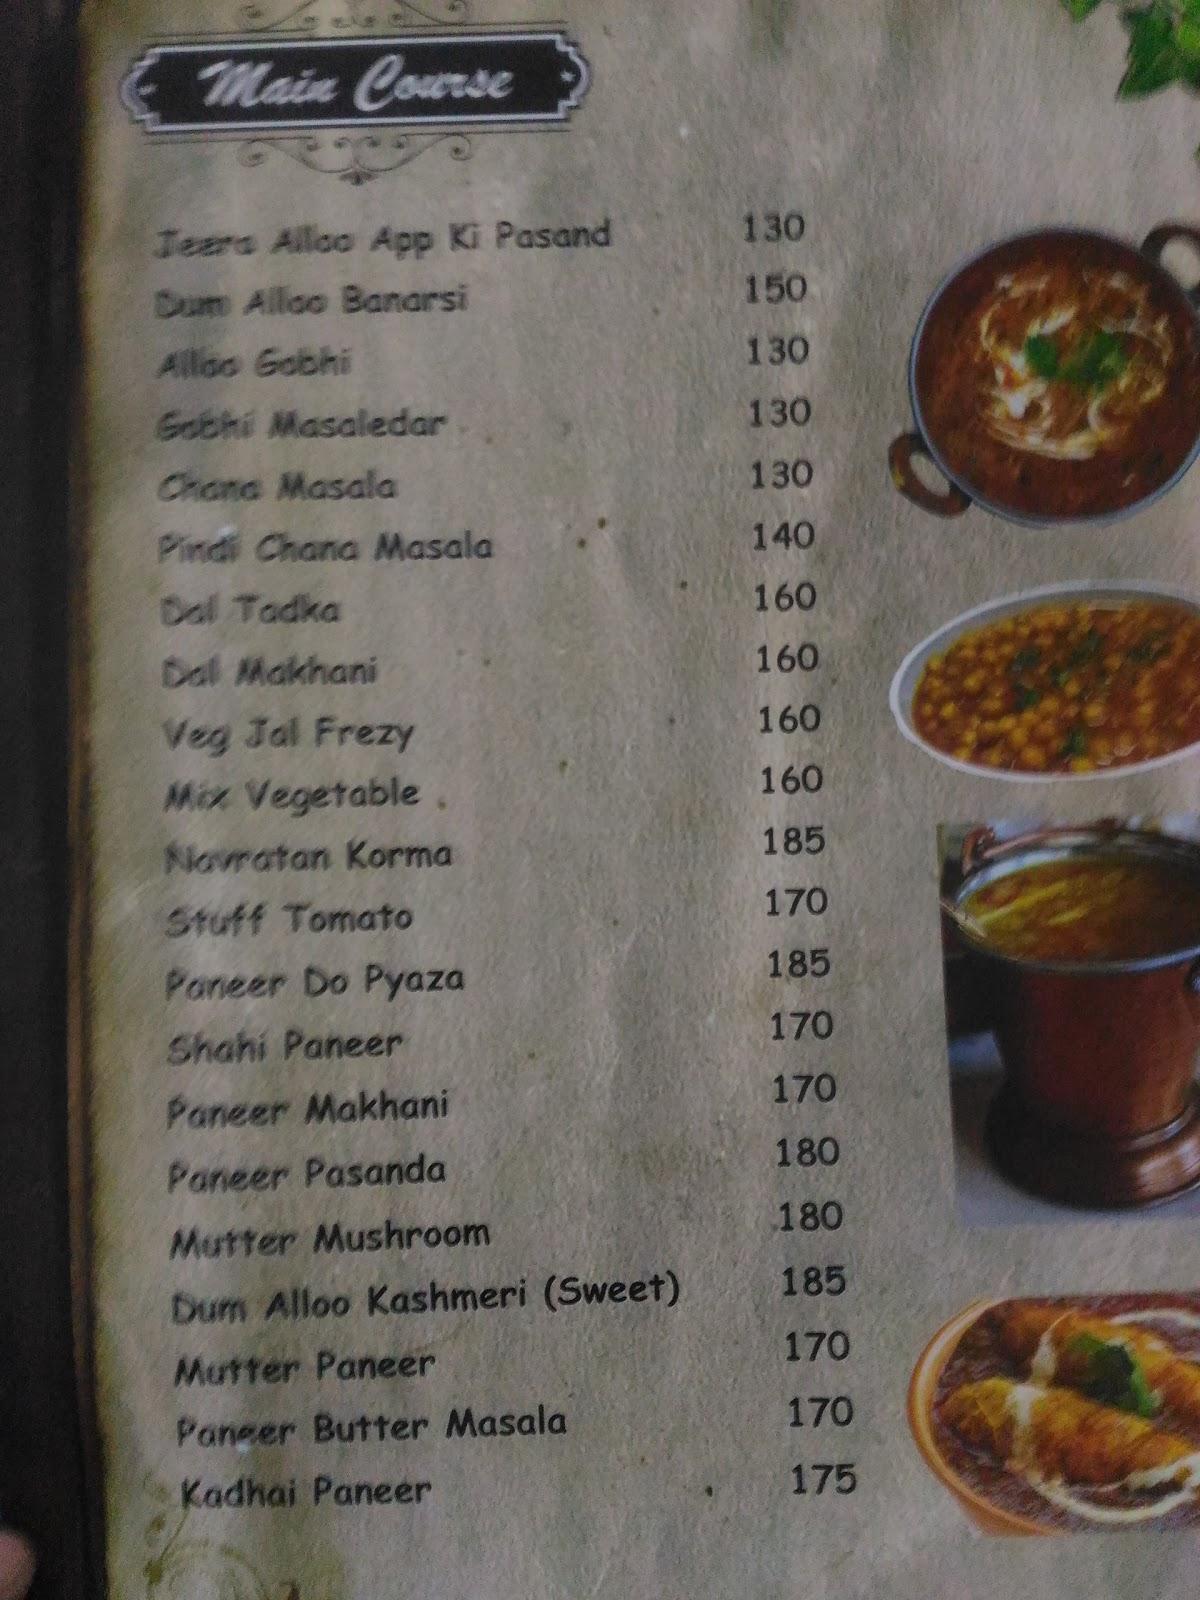 Main Course
Jeera Alloo App Ki Pasand 130
Dum Alloo Banarsi 150
Alloo Gobhi 130
Gobhi Masaledar 130
Chana Masala 130
Pindi Chana Masala 140
Dal Tadka 160
Dal Makhani 160
Veg Jal Frezy 160
Mix Vegetable 160
Navratan Korma 185
Stuff Tomato 170
Paneer Do Pyaza 185
Shahi Paneer 170
Paneer Makhani 170
Paneer Pasanda 180
Mutter Mushroom 180
Dum Alloo Kashmeri (Sweet) 185
Mutter Paneer 170
Paneer Butter Masala 170
Kadhai Paneer 175